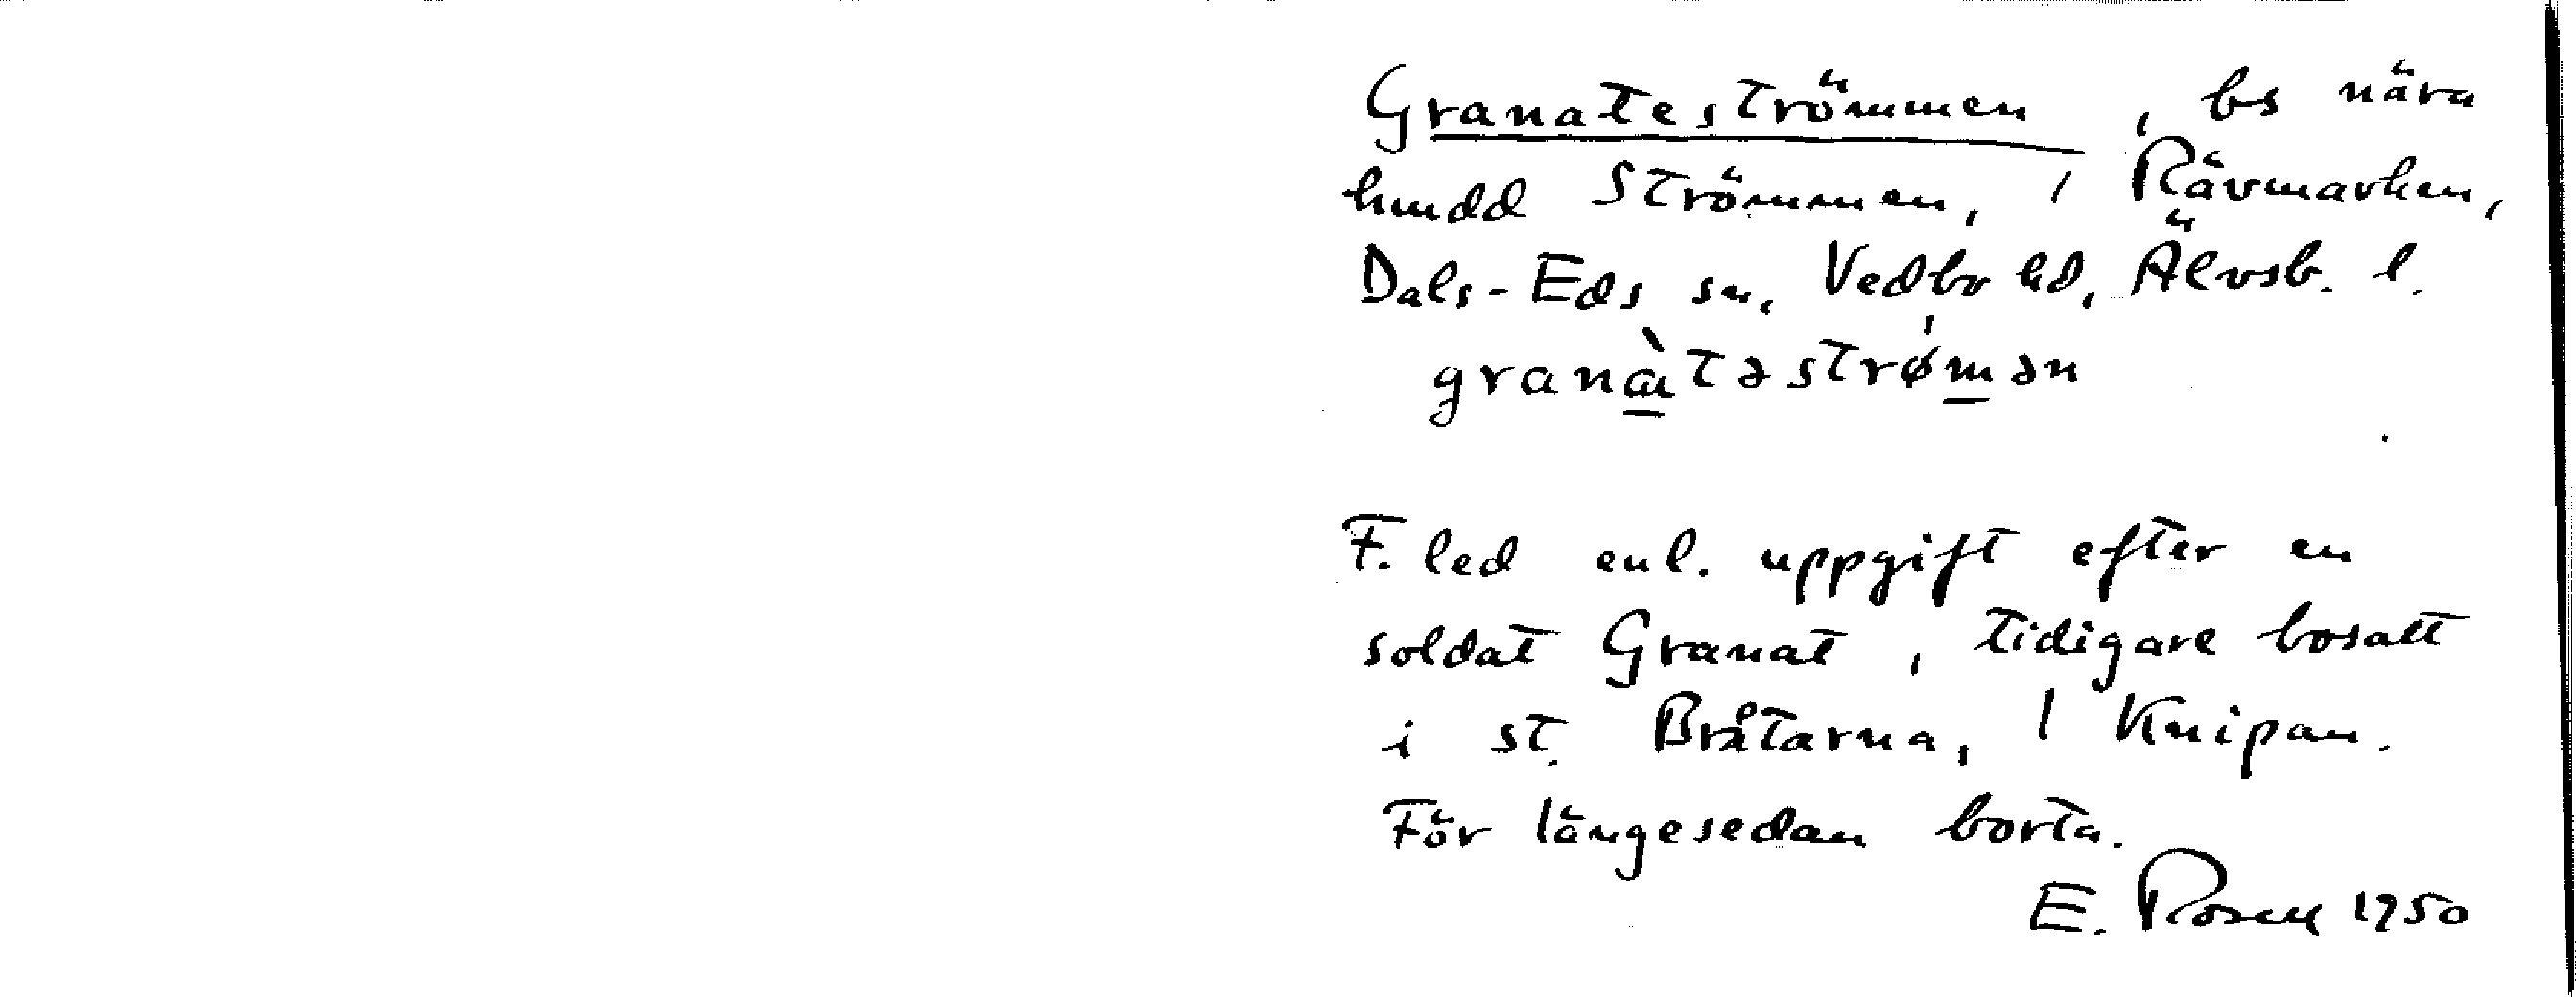 Granateströmmen, bs nära
hmdd Strömmen, / Rävmarken,
Dals-Eds sn, Vedbo hd, Älvsb. l.
granàtəstrǿmən
F. led enl. uppgift efter en
soldat Granat, tidigare bosatt
i st. Bråtarna, / Knipan.
För längesedan borta.
E. Rosell 1950